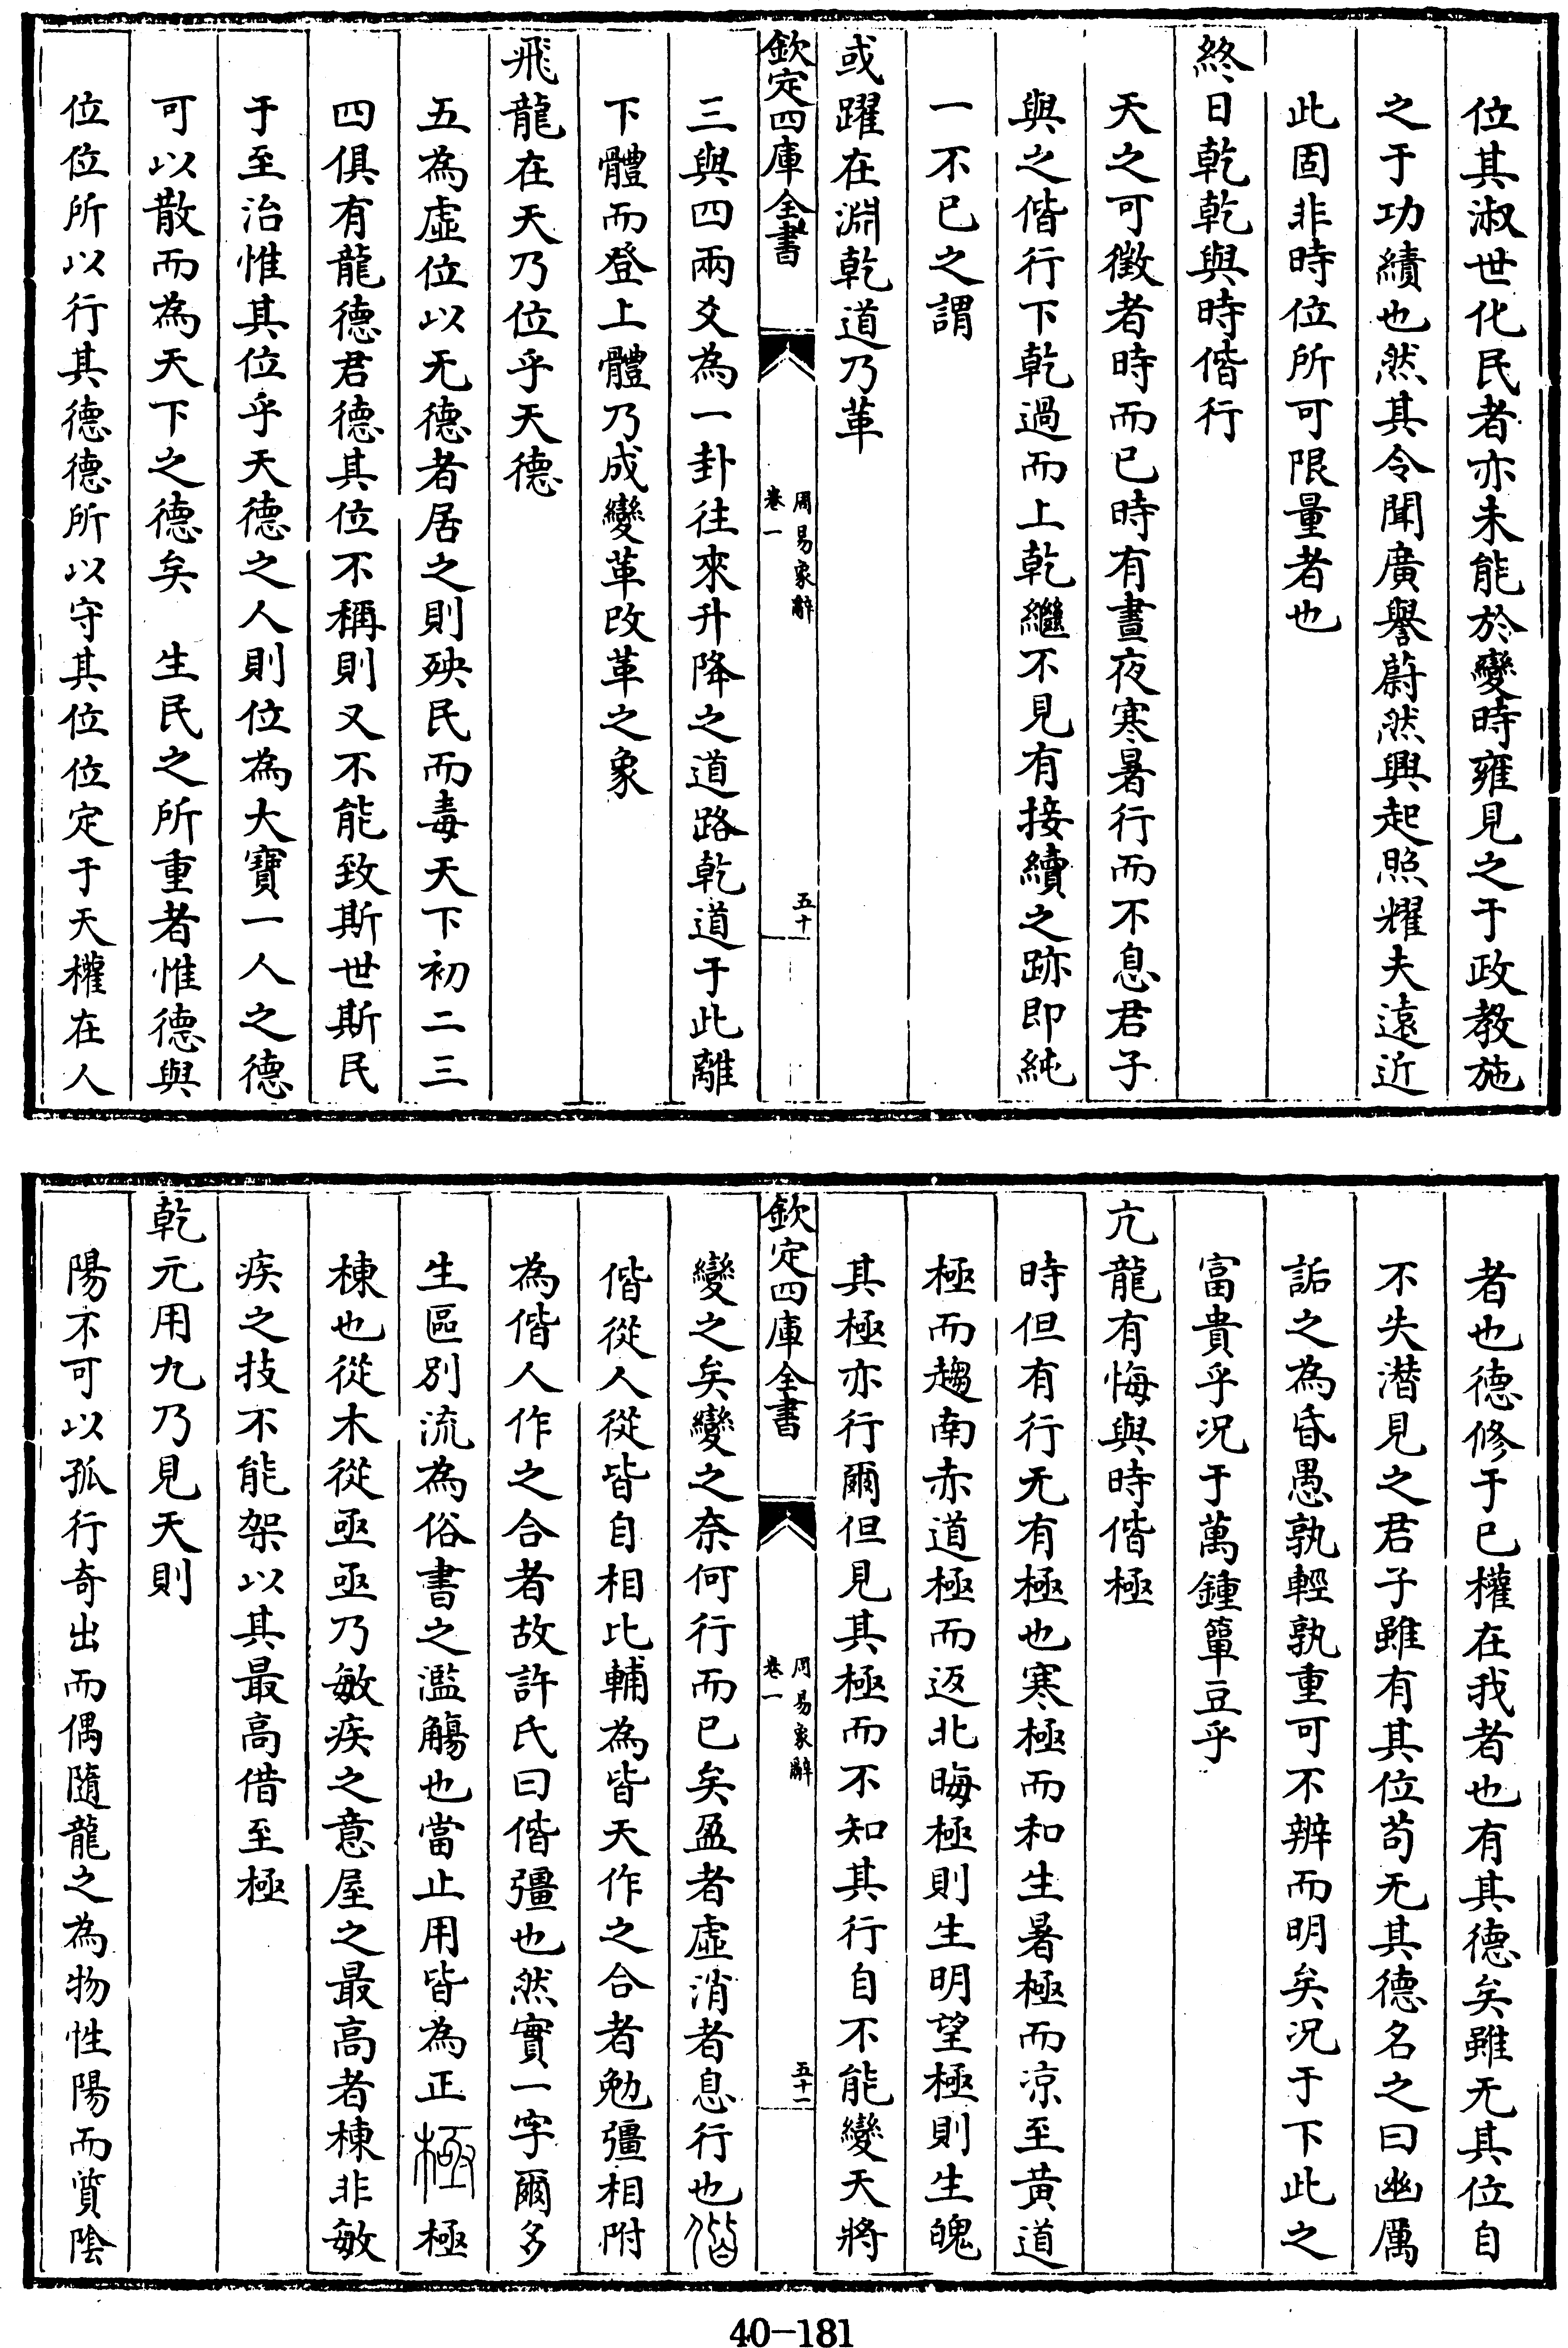 位其淑世化民者亦未能於變時雍見之于政教施
之于功績也然其令聞廣譽蔚然興起照耀夫遠近
此固非時位所可限量者也
終日乾乾與時偕行
天之可徵者時而已時有晝夜寒暑行而不息君子
與之偕行下乾過而上乾繼不見有接續之跡即純
一不已之謂
或躍在淵乾道乃革
欽定四庫全書
周易象辭
卷一
五十
三與四兩爻為一卦往來升降之道路乾道于此離
下體而登上體乃成變革改革之象
飛龍在天乃位乎天德
五為虛位以无德者居之則殃民而毒天下初二三
四俱有龍德君德其位不稱則又不能致斯世斯民
于至治惟其位乎天德之人則位為大寶一人之德
可以散而為天下之德矣　生民之所重者惟德與
位位所以行其德德所以守其位位定于天權在人
者也德修于已權在我者也有其德矣雖无其位自
不失潛見之君子雖有其位苟无其德名之曰幽厲
詬之為昏愚孰輕孰重可不辨而明矣況于下此之
富貴乎況于萬鍾簞豆乎
亢龍有悔與時偕極
時但有行无有極也寒極而和生暑極而凉至黃道
極而趨南赤道極而返北晦極則生明望極則生魄
其極亦行爾但見其極而不知其行自不能變天將
欽定四庫全書
周易象辭
卷一
五十一
變之矣變之奈何行而已矣盈者虛消者息行也偕
偕從人從皆自相比輔為皆天作之合者勉彊相附
為偕人作之合者故許氏曰偕彊也然實一字爾多
生區別流為俗書之濫觴也當止用皆為正極極
棟也從木從亟亟乃敏疾之意屋之最高者棟非敏
疾之技不能架以其最高借至極
乾元用九乃見天則
陽不可以孤行奇出而偶隨龍之為物性陽而質陰
40-181